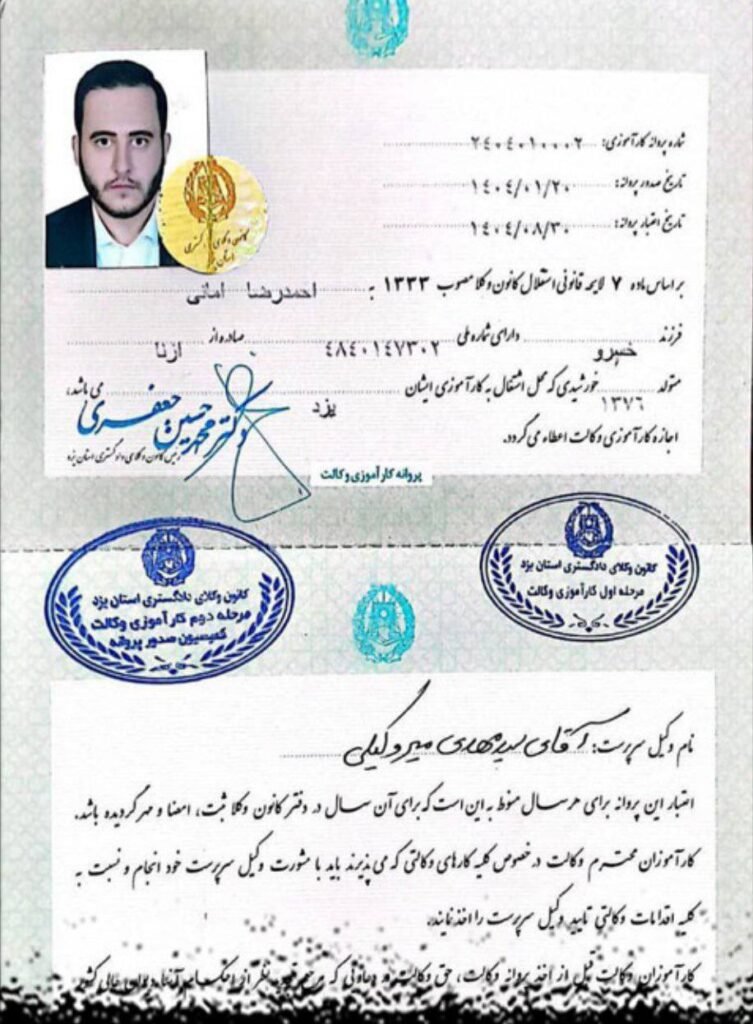 شماره پروانه کارآموزی: ۲۴۰۴۰۱۰۰۰۲
تاریخ صدور پروانه: ۱۴۰۴/۰۱/۲۰
تاریخ اعتبار پروانه: ۱۴۰۴/۰۸/۳۰
بر اساس ماده ۷ لایحه قانونی استقلال کانون وکلا مصوب ۱۳۳۳ به احمدرضا امانی
فرزند خسرو دارای شماره ملی ۴۸۴۰۱۴۷۳۰۲ صادره از ازنا
متولد ۱۳۷۶ خورشیدی که محل اشتغال به کارآموزی ایشان یزد می باشد،
اجازه کارآموزی وکالت اعطاء می گردد.
دکتر محمدحسین جعفری
رئیس کانون وکلای دادگستری استان یزد
پروانه کارآموزی وکالت
کانون وکلای دادگستری استان یزد
مرحله اول کارآموزی وکالت
کانون وکلای دادگستری استان یزد
مرحله دوم کارآموزی وکالت
کمیسیون صدور پروانه
نام وکیل سرپرست: آقای سیدمهدی میروکیلی
اعتبار این پروانه برای هر سال منوط به این است که برای آن سال در دفتر کانون وکلا ثبت، امضا و مهر گردیده باشد.
کارآموزان محترم وکالت در خصوص کلیه کارهای وکالتی که می پذیرند باید با مشورت وکیل سرپرست خود انجام و نسبت به
کلیه اقدامات وکالتی تایید وکیل سرپرست را اخذ نمایند.
کارآموزان وکالت قبل از اخذ پروانه وکالت، حق وکالت در دعاوی که مرجع تجدید نظر از احکام آنها دیوان عالی کشور